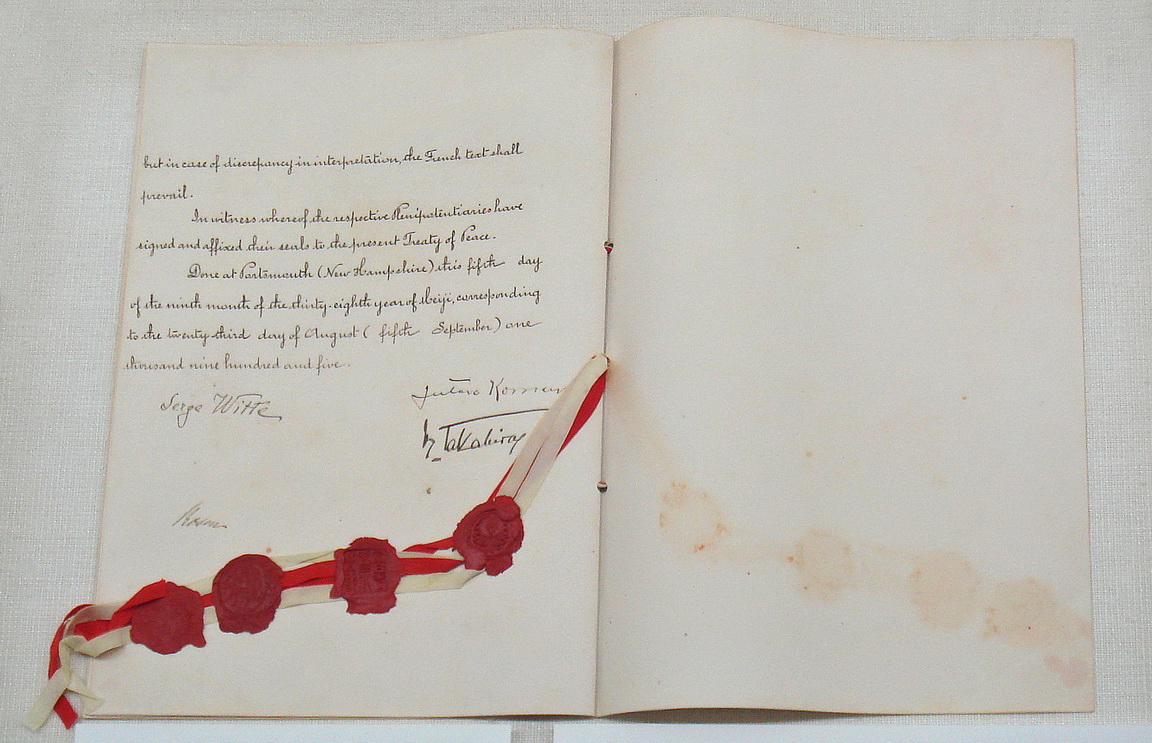 but in case of discrepancy in interpretation, the French text shall
prevail.
In witness whereof the respective Plenipotentiaries have
signed and affixed their seals to the present Treaty of Peace.
Done at Portsmouth (New Hampshire) this fifth day
of the ninth month of the thirty-eighth year of Meiji, corresponding
to the twenty-third day of August (fifth September) one
thousand nine hundred and five.
Serge Witte
Jutaro Komura
K. Takahira
Rosen